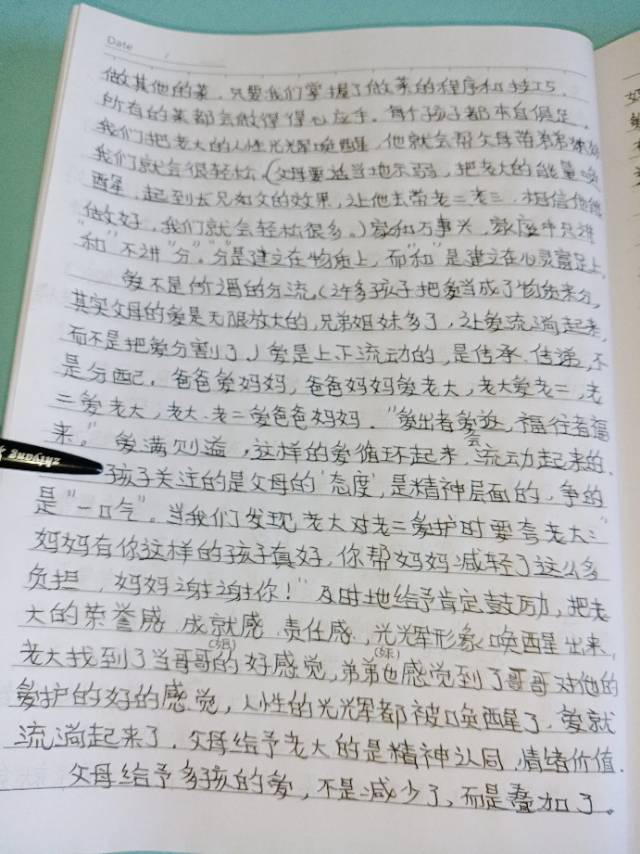 Date
做其他的菜，只要我们掌握了做菜的程序和技巧，
所有的菜都会做得得心应手。每个孩子都本自俱足，
我们把老大的人性光辉唤醒，他就会帮父母带弟弟妹妹
我们就会很轻松（父母要适当地示弱，把老大的能量唤
醒，起到长兄如父的效果，让他去带老二老三，相信他能
做好，我们就会轻松很多。）家和万事兴，家庭中只讲
"和"不讲"分"。"分"是建立在物质上，而"和"是建立在心灵富足上，
爱不是价值的分流，（许多孩子把爱当成了物质来分，
其实父母的爱是无限放大的，兄弟姐妹多了，让爱流淌起来，
而不是把爱分割了）爱是上下流动的，是传承、传递，不
是分配，爸爸爱妈妈，爸爸妈妈爱老大，老大爱老二，老
二爱老大，老大、老二爱爸爸妈妈。"爱出者爱返，福行者福
来。"爱满则溢，这样的爱循环起来，会流动起来的。
孩子关注的是父母的'态度'，是精神层面的，争的
是"一口气"。当我们发现老大对老二爱护时要夸老大："
妈妈有你这样的孩子真好，你帮妈妈减轻了这么多
负担，妈妈谢谢你！"及时地给予肯定鼓励，把老
大的荣誉感、成就感、责任感、光辉形象唤醒出来，
老大找到了当哥哥的(姐)好感觉，弟弟(妹)也感觉到了哥哥对他的
爱护的好的感觉，人性的光辉都被唤醒了，爱就
流淌起来了，父母给予老大的是精神认同，情绪价值。
父母给予多孩的爱，不是减少了，而是叠加了。